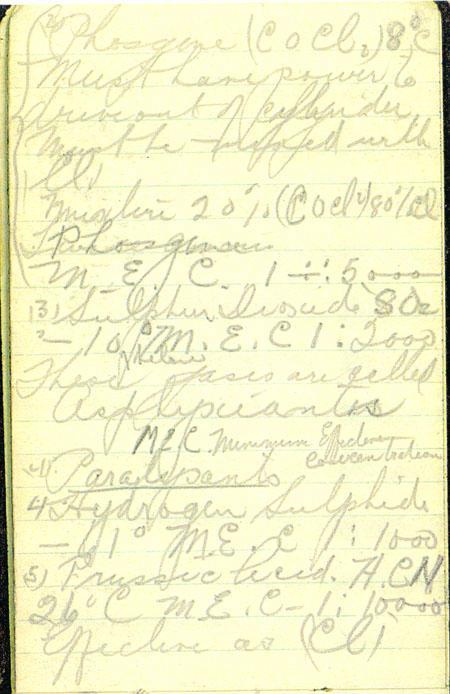 (2) Phosgene (C O Cl2) 8°C
Must have power to
drive out of cylinder
Must be mixed with
Cl)
Mixture 20% (COCl2) 80% Cl
Phosgene
M. E. C. 1 ÷ : 5000
(3) Sulphur Dioxide SO2
- 10° M. E. C 1 : 2000
These gases are called
Asphyxiants
M.E.C. Minimum Effective
Concentration
Paralysants
4 Hydrogen Sulphide
- 61° M.E.C 1 : 1000
5) Prussic Acid. HCN
26°C M.E.C - 1 : 10000
Effective as (Cl)